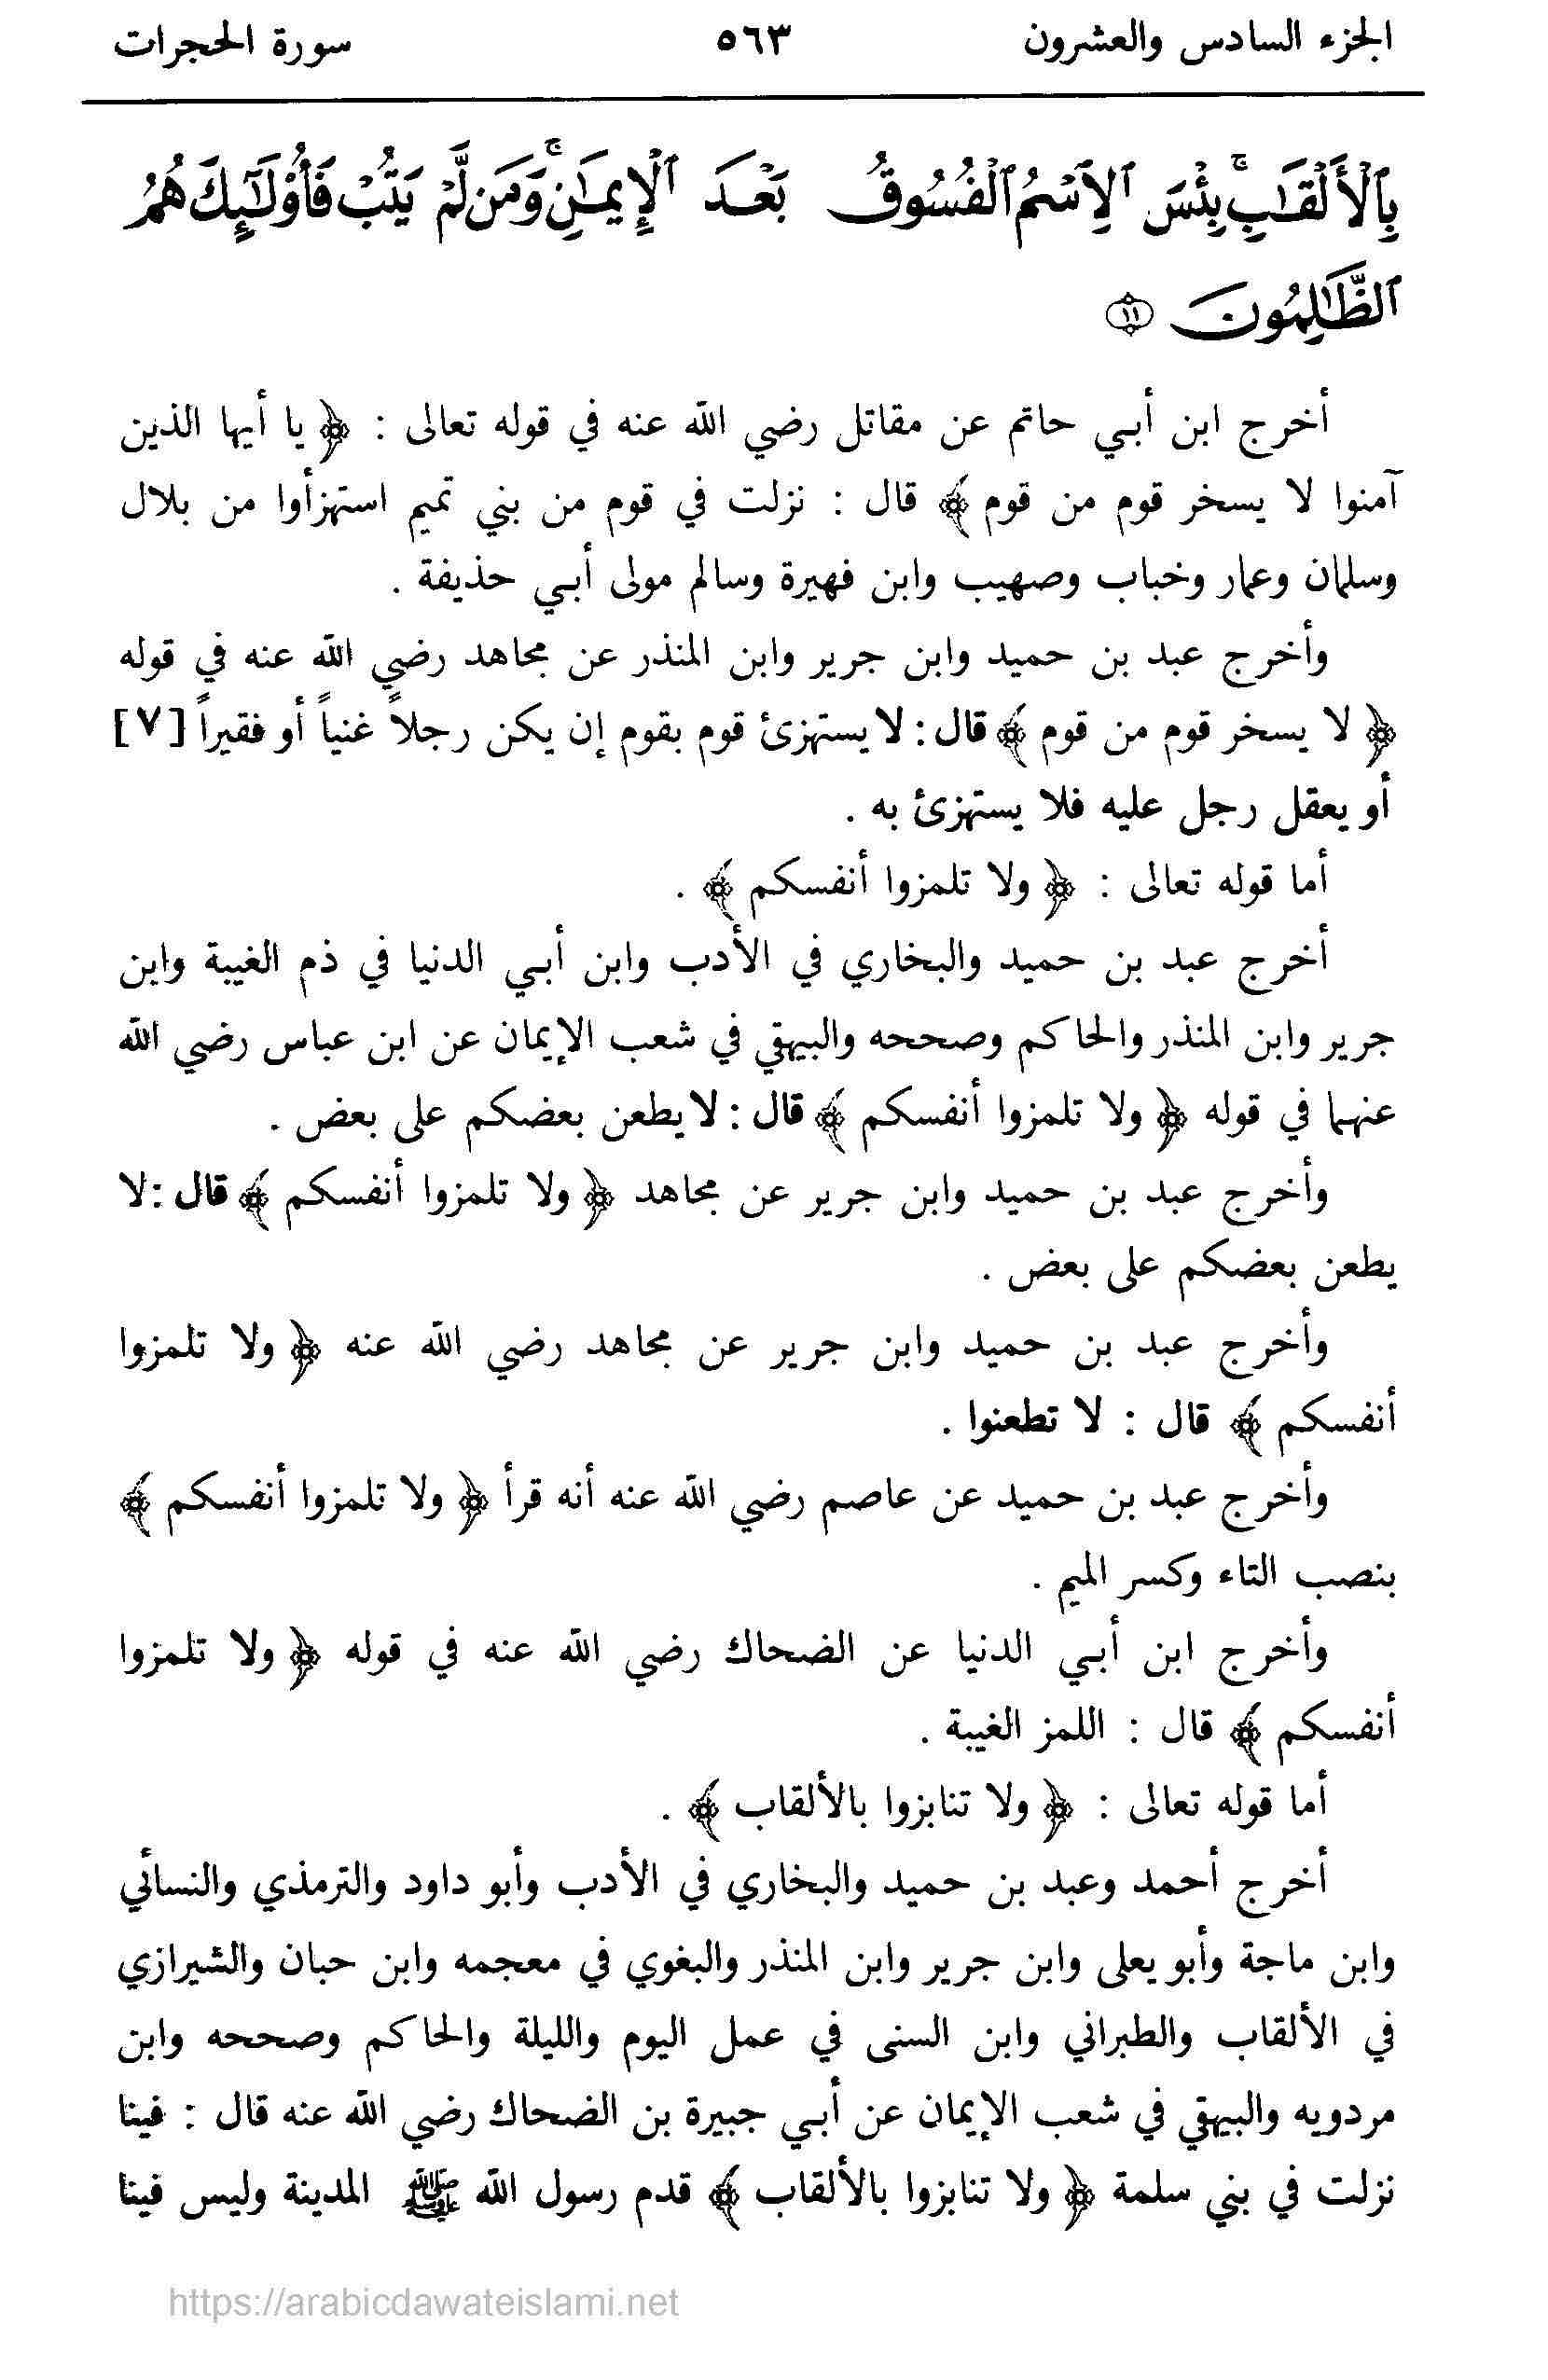 الجزء السادس والعشرون ٥٦٣ سورة الحجرات
بِٱلْأَلْقَٰبِۖ بِئْسَ ٱلِٱسْمُ ٱلْفُسُوقُ بَعْدَ ٱلْإِيمَٰنِۚ وَمَن لَّمْ يَتُبْ فَأُوْلَٰٓئِكَ هُمُ
ٱلظَّٰلِمُونَ ١١
أخرج ابن أبي حاتم عن مقاتل رضي الله عنه في قوله تعالى : ﴿ يا أيها الذين
آمنوا لا يسخر قوم من قوم ﴾ قال : نزلت في قوم من بني تميم استهزأوا من بلال
وسلمان وعمار وخباب وصهيب وابن فهيرة وسالم مولى أبي حذيفة .
وأخرج عبد بن حميد وابن جرير وابن المنذر عن مجاهد رضي الله عنه في قوله
﴿ لا يسخر قوم من قوم ﴾ قال : لا يستهزئ قوم بقوم إن يكن رجلاً غنياً أو فقيراً [٧]
أو يعقل رجل عليه فلا يستهزئ به .
أما قوله تعالى : ﴿ ولا تلمزوا أنفسكم ﴾ .
أخرج عبد بن حميد والبخاري في الأدب وابن أبي الدنيا في ذم الغيبة وابن
جرير وابن المنذر والحاكم وصححه والبيهقي في شعب الإيمان عن ابن عباس رضي الله
عنهما في قوله ﴿ ولا تلمزوا أنفسكم ﴾ قال : لا يطعن بعضكم على بعض .
وأخرج عبد بن حميد وابن جرير عن مجاهد ﴿ ولا تلمزوا أنفسكم ﴾ قال : لا
يطعن بعضكم على بعض .
وأخرج عبد بن حميد وابن جرير عن مجاهد رضي الله عنه ﴿ ولا تلمزوا
أنفسكم ﴾ قال : لا تطعنوا .
وأخرج عبد بن حميد عن عاصم رضي الله عنه أنه قرأ ﴿ ولا تلمزوا أنفسكم ﴾
بنصب التاء وكسر الميم .
وأخرج ابن أبي الدنيا عن الضحاك رضي الله عنه في قوله ﴿ ولا تلمزوا
أنفسكم ﴾ قال : اللمز الغيبة .
أما قوله تعالى : ﴿ ولا تنابزوا بالألقاب ﴾ .
أخرج أحمد وعبد بن حميد والبخاري في الأدب وأبو داود والترمذي والنسائي
وابن ماجة وأبو يعلى وابن جرير وابن المنذر والبغوي في معجمه وابن حبان والشيرازي
في الألقاب والطبراني وابن السنى في عمل اليوم والليلة والحاكم وصححه وابن
مردويه والبيهقي في شعب الإيمان عن أبي جبيرة بن الضحاك رضي الله عنه قال : فينا
نزلت في بني سلمة ﴿ ولا تنابزوا بالألقاب ﴾ قدم رسول الله ﷺ المدينة وليس فينا
https://arabicdawateislami.net